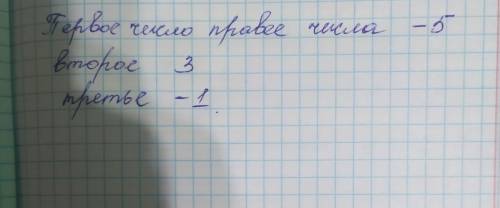 Первое число правее числа -5
второе 3
третье -1.